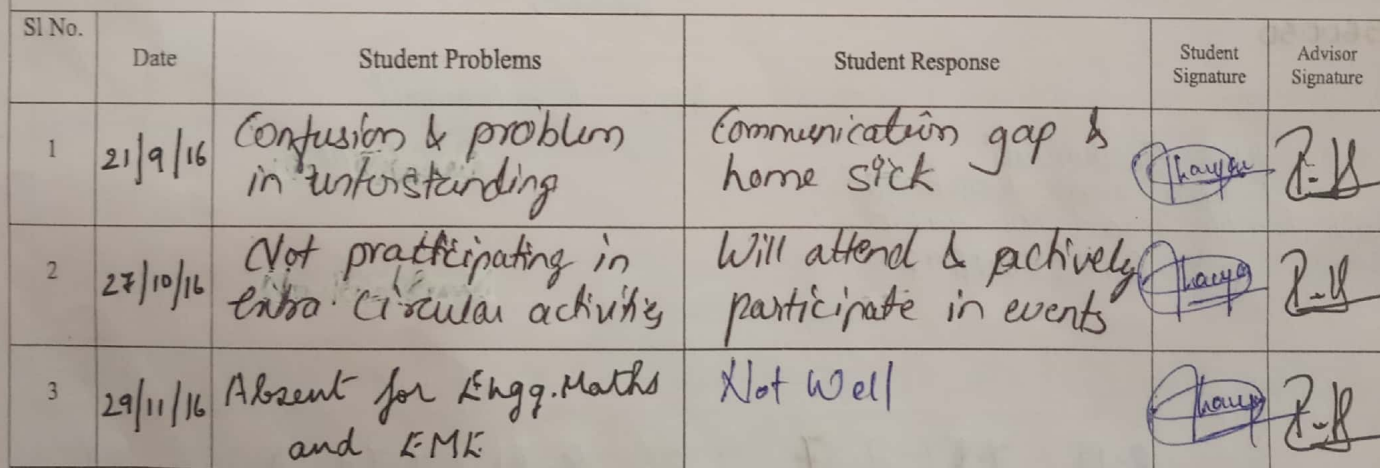 Sl No.
Date
Student Problems
Student Response
Student Signature
Advisor Signature
1
21/9/16
Confusion & problem
in unterstanding
Communication gap &
home sick
2
27/10/16
Not pratticipating in
extra circular activities
Will attend & pactively
participate in events
3
29/11/16
Absent for Engg. Maths
and EME
Not Well